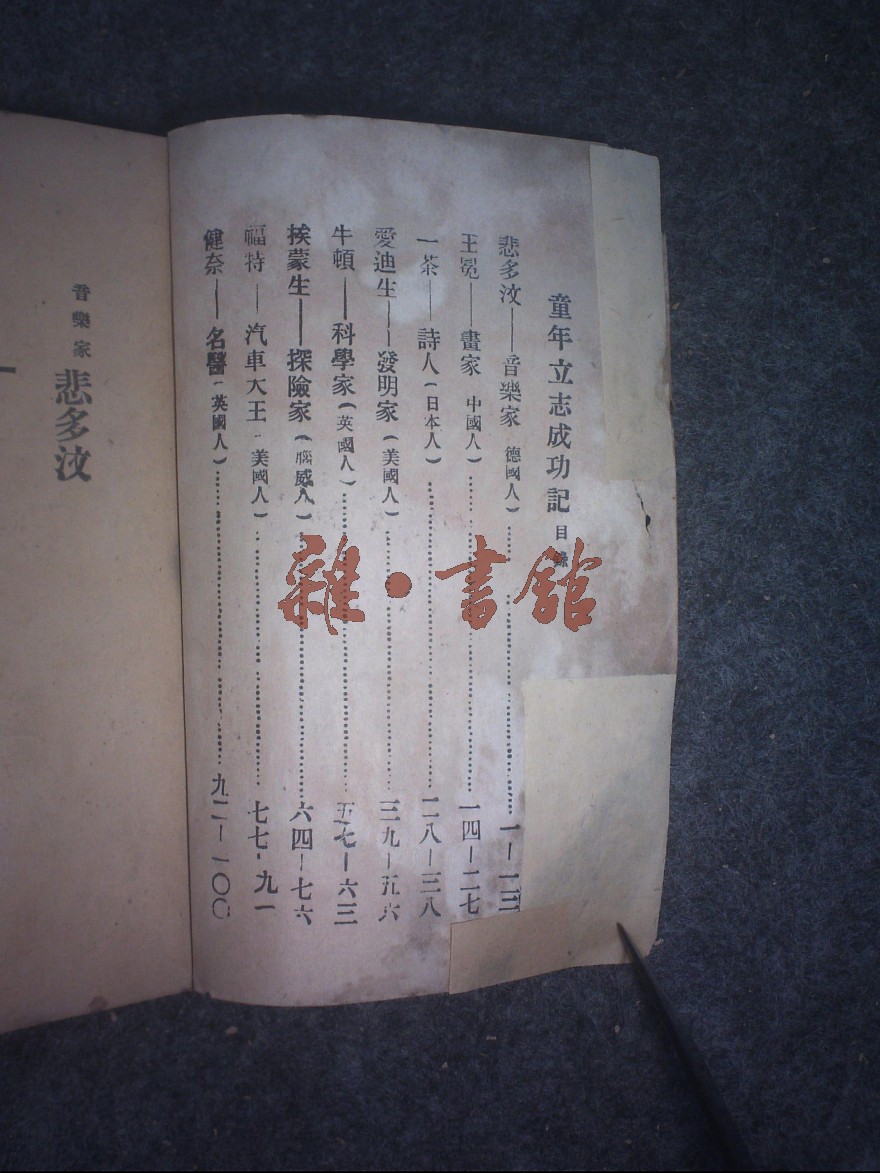 童年立志成功記 目錄
悲多汶——音樂家 德國人)……一－一三
王冕——畫家 中國人)……一四－二七
一茶——詩人(日本人)……二八－三八
愛迪生——發明家(美國人)……三九－五六
牛頓——科學家(英國人)……五七－六三
挨蒙生——探險家(腦威人)……六四－七六
福特——汽車大王 美國人)……七七－九一
健奈——名醫(英國人)……九二－一〇〇
音樂家 悲多汶
一
雜·書館